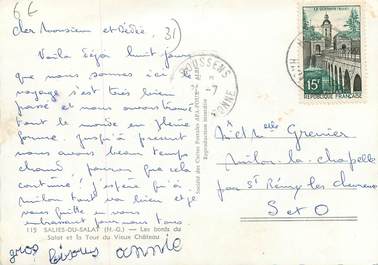 Cher Monsieur et Dédée.
Voilà déjà huit jours
que nous sommes ici
voyage s'est très bien
passé et nous avons trouvé
tout le monde en pleine
forme. jusqu'à présent
nous avons beau temps
chaud, pourvu que cela
continue! j'espère qu'à
Milon tout va bien et je
vous quitte en vous
embrassant pour nous tous
115 SALIES-DU-SALAT (H.-G.) — Les bords du
Salat et la Tour du Vieux Château
gros bisous annie
31
BOUSSENS
-7
LE QUESNOY (NORD)
15F
REPUBLIQUE FRANÇAISE
Société des Cartes Postales
Reproduction interdite
Grenier
Milon-la-chapelle
par St Rémy les chevreuse
S et O